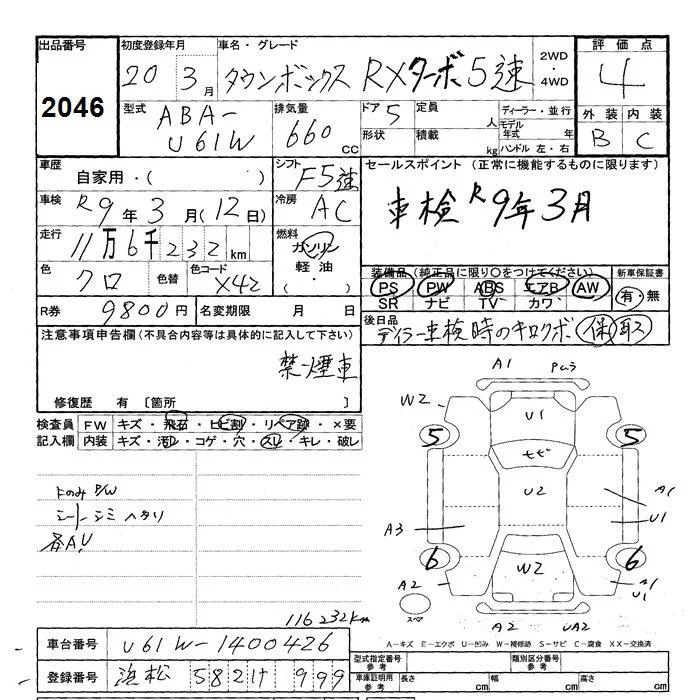 出品番号 2046
初度登録年月 20 3月
車名・グレード タウンボックス RXターボ 5速 2WD・4WD
評価点 4
外装 B 内装 C
型式 ABA-U61W
排気量 660 cc
ドア 5 形状
定員 人 積載 kg
ディーラー・並行
モデル年式 年
ハンドル 左・右
車歴 自家用・( )
シフト F5速
車検 R9年3月(12日)
冷房 AC
走行 11万6千232km
燃料 ガソリン 軽油 ( ・ )
色 クロ 色替 色コード X42
R券 9800円 名変期限 月 日
セールスポイント (正常に機能するものに限ります)
車検R9年3月
装備品 (純正品に限り○をつけてください) 新車保証書
PS PW ABS エアB AW 有・無
SR ナビ TV カワ
後日品
ディラー車検時のキロクボ 保 取
注意事項申告欄(不具合内容等は具体的に記入して下さい)
禁煙車
修復歴 有 〔箇所 〕
検査員記入欄
FW キズ・飛石・ヒビ割・リペア跡・×要
内装 キズ・汚レ・コゲ・穴・スレ・キレ・破レ
FのみP/W
シートシミ ヘタリ
各AU
116232km
A1 Pムラ
W2 U1
5 5
モビ
U2
A1
U1
A3
6 6
W2
A2 A1 U1
スペア
A2 UA2
A-キズ E-エクボ U-凹み W-補修跡 S-サビ C-腐食 XX-交換済
車台番号 U61W-1400426
登録番号 浜松 582 け 999
型式指定番号 参考 類別区分番号 参考
車庫証明用 参考 長さ cm 幅 cm 高さ cm